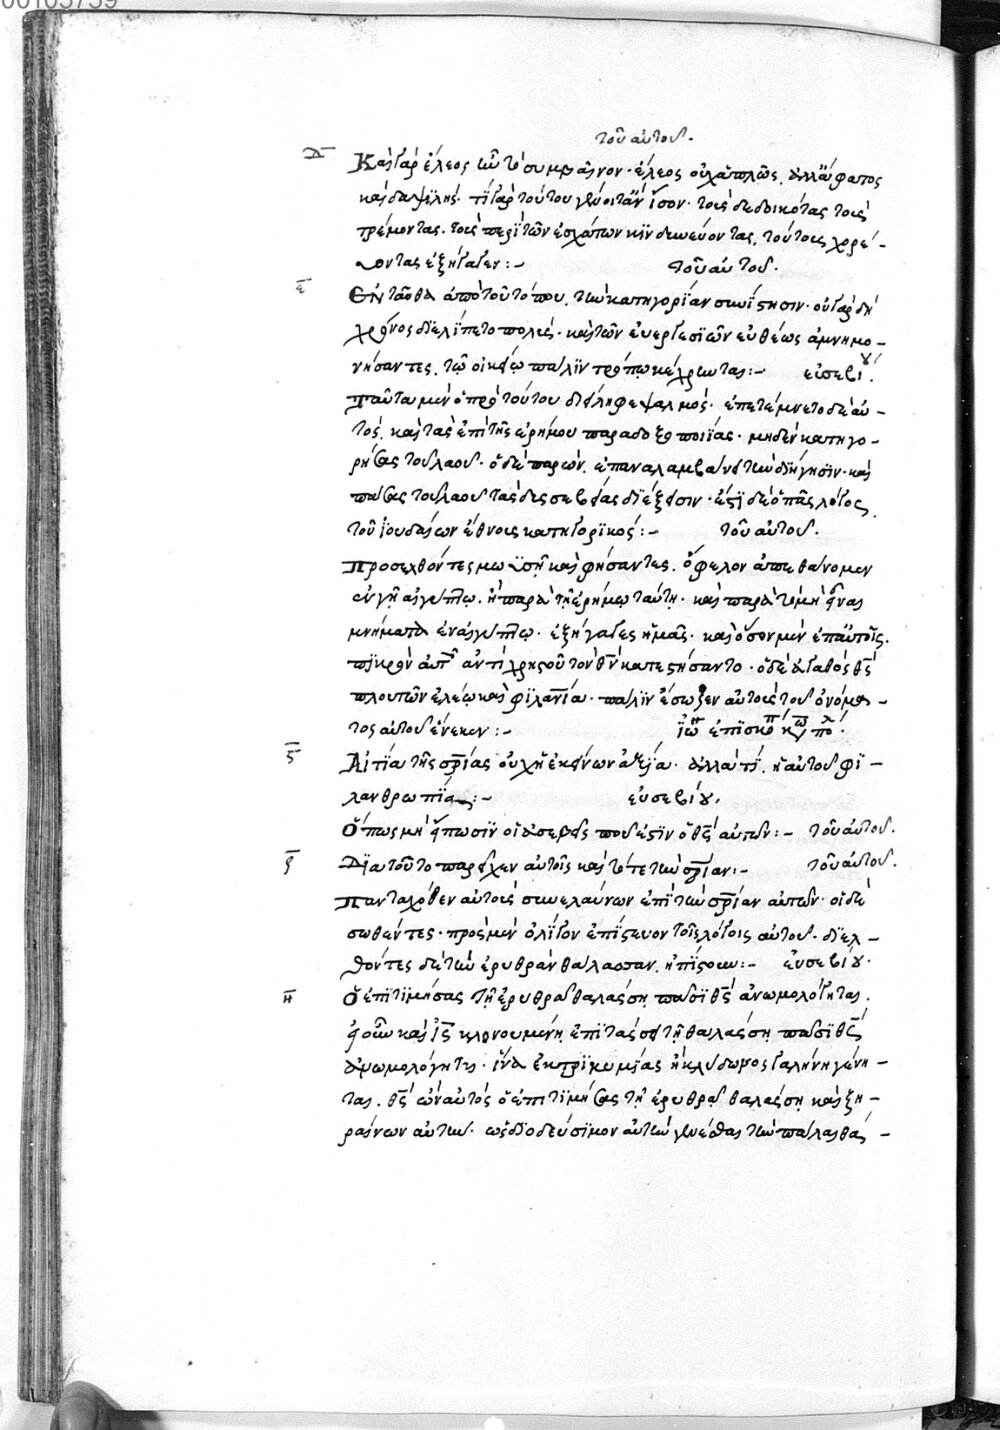 00105759
τοῦ αὐτοῦ.
Δ Καὶ γὰρ ἔλεος ἦν τὸ συμβαῖνον· ἔλεος οὐχ ἁπλῶς, ἀλλ' ἄφατος
καὶ δαψιλής· τί γὰρ τούτου γένοιτ' ἂν ἴσον· τοὺς δεδοικότας τοὺς
τρέμοντας. τοὺς περὶ τῶν ἐσχάτων κινδυνεύοντας, τούτους χορεύ-
οντας ἐξήγαγεν:- τοῦ αὐτοῦ.
ε Ἐνταῦθα ἀπὸ τοῦ τόπου, τὴν κατηγορίαν συνίστησιν· οὐ γὰρ δὴ
χρόνος διελίπετο πολύς· καὶ τῶν εὐεργεσιῶν εὐθέως ἀμνημο-
νήσαντες, τῷ οἰκείῳ πάλιν τρόπῳ κέχρηνται:- εὐσεβίου.
Ταῦτα μὲν ὁ πρὸ τούτου διείληφε ψαλμός· ἐπετέμνετο δὲ αὐ-
τός, καὶ τὰς ἐπὶ τῆς ἐρήμου παραδοξοποιίας· μηδὲν κατηγο-
ρήσας τοῦ λαοῦ· ὁ δὲ παρών, ἐπαναλαμβάνει τὴν διήγησιν· καὶ
πάσας τοῦ λαοῦ τὰς δυσσεβείας διέξεισιν· ἔστι δὲ ὁ πᾶς λόγος
τοῦ ἰουδαίων ἔθνους κατηγορικός:- τοῦ αὐτοῦ.
Προσελθόντες μωυσῇ καὶ φήσαντες. ὄφελον ἀπεθάνομεν
ἐν γῇ αἰγύπτῳ. ἢ παρὰ τῇ ἐρήμῳ ταύτῃ· καὶ παρὰ τὸ μὴ εἶναι
μνήματα ἐν αἰγύπτῳ· ἐξήγαγες ἡμᾶς· καὶ ὅσον μὲν ἐπ' αὐτοῖς.
πικρὸν ἀντὶ χρηστοῦ τὸν θν κατεστήσαντο· ὁ δὲ ἀγαθὸς θς
πλουτῶν ἐλέῳ καὶ φιλανία· πάλιν ἔσωζεν αὐτοὺς τοῦ ὀνόμα-
τος αὐτοῦ ἕνεκεν:- ἰω ἐπισκόπ κω πό
ς Αἰτία τῆς σρίας οὐχ ἡ ἐκείνων ἀξία· ἀλλὰ τί, ἡ αὐτοῦ φι-
λανθρωπία:- εὐσεβίου.
Ὅπως μὴ εἴπωσιν οἱ ἀσεβεῖς ποῦ ἐστιν ὁ θς αὐτῶν:- τοῦ αὐτοῦ.
ζ Διὰ τοῦτο παρεῖχεν αὐτοῖς καὶ τότε τὴν σρίαν:- τοῦ αὐτοῦ.
Πανταχόθεν αὐτοὺς συνελαύνων ἐπὶ τὴν σρίαν αὐτῶν· οἱ δὲ
σωθέντες· πρὸς μὲν ὀλίγον ἐπίστευον τοῖς λόγοις αὐτοῦ· διελ-
θόντες δὲ τὴν ἐρυθρὰν θάλασσαν, ἠπίστουν:- εὐσεβίου.
η Ὁ ἐπιτιμήσας τῇ ἐρυθρᾷ θαλάσσῃ πᾶσι θς ἀνωμολόγηται.
εἰ οὖν καὶ ις κλονουμένῃ ἐπιτάσσει τῇ θαλάσσῃ πᾶσι θς
ἀνωμολόγηται· ἵνα ἐκ τρικυμίας ἢ κλύδωνος γαλήνη γένη-
ται. θς ὢν αὐτὸς ὁ ἐπιτιμήσας τῇ ἐρυθρᾷ θαλάσσῃ καὶ ξη-
ραίνων αὐτήν· ὡς διοδεύσιμον αὐτὴν γενέσθαι τὴν πάλαι βα-